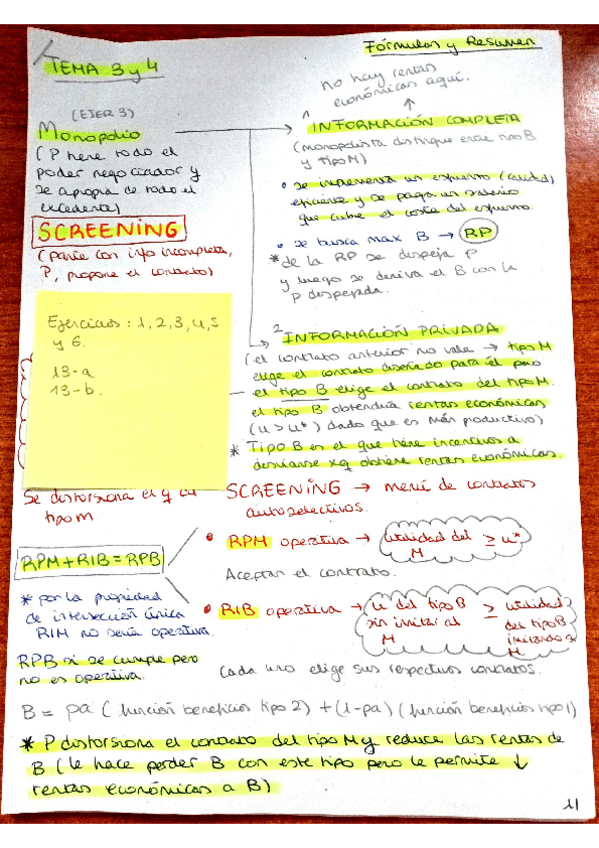 Fórmulas y Resumen
TEMA 3 y 4
no hay rentas
económicas aquí.
(EJER 3)
Monopolio
(P tiene todo el
poder negociador y
se apropia de todo el
excedente)
SCREENING
(parte con info incompleta,
P, propone el contrato)
1 INFORMACIÓN COMPLETA
(monopolista distingue entre tipo B
y tipo M)
• se implementa un esfuerzo (calidad)
eficiente y se paga un salario
que cubre el coste del esfuerzo.
• se busca max B → RP
* de la RP se despeja P
y luego se deriva el B con la
P despejada.
Ejercicios: 1, 2, 3, 4, 5
y 6.
13-a
13-b.
2 INFORMACIÓN PRIVADA
(el contrato anterior no vale → tipo M
elige el contrato diseñado para él pero
el tipo B elige el contrato del tipo M.
el tipo B obtendría rentas económicas
(u > u*) dado que es más productivo)
* Tipo B es el que tiene incentivos a
desviarse xq obtiene rentas económicas.
Se distorsiona el
tipo M
SCREENING → menú de contratos
autoselectivos.
RPM + RIB = RPB
• RPM operativa → utilidad del ≥ u*
M
Aceptan el contrato.
* por la propiedad
de intersección única
RIM no sería operativa.
• RIB operativa → u del tipo B ≥ utilidad
sin imitar al del tipo B
M imitando a
M
RPB si se cumple pero
no es operativa.
Cada uno elige sus respectivos contratos.
B = pa (función beneficios tipo 2) + (1-pa) (función beneficios tipo 1)
* P distorsiona el contrato del tipo M y reduce las rentas de
B (le hace perder B con este tipo pero le permite ↓
rentas económicas a B)